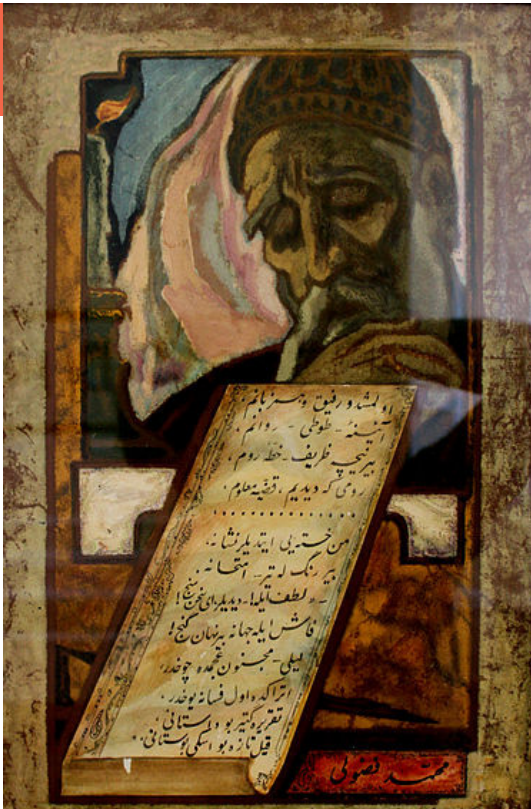 اولمشدو رفیق و همزبانم،
آئینه - طوطی - روانم،
بیر نیچه ظریف - خطّه روم،
رومی که دیدیم، قضیّه معلوم،
من خسته‌یی ایتدیلر نشانه،
بیر رنگ له تیر - امتحانه،
لطف ایله! - دیدیلر، ای سخن سنج!
فاش ایله جهانه بیر نهان گنج!
لیلی - مجنون عجمده چوخدر،
اتراکده اول فسانه یوخدر،
تقریره گتیر بو داستانی،
قیل تازه بو اسکی بوستانی،
محمّد فضولی